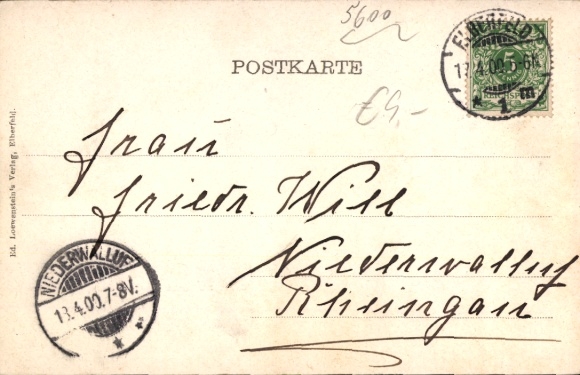 5600
POSTKARTE
€9,-
ELBERFELD
4.00.
1 m
5
Frau
Friedr. Will
Niederwalluf
Rheingau
NIEDERWALLUF
13.4.00.7-8V.
Ed. Loewenstein's Verlag, Elberfeld.